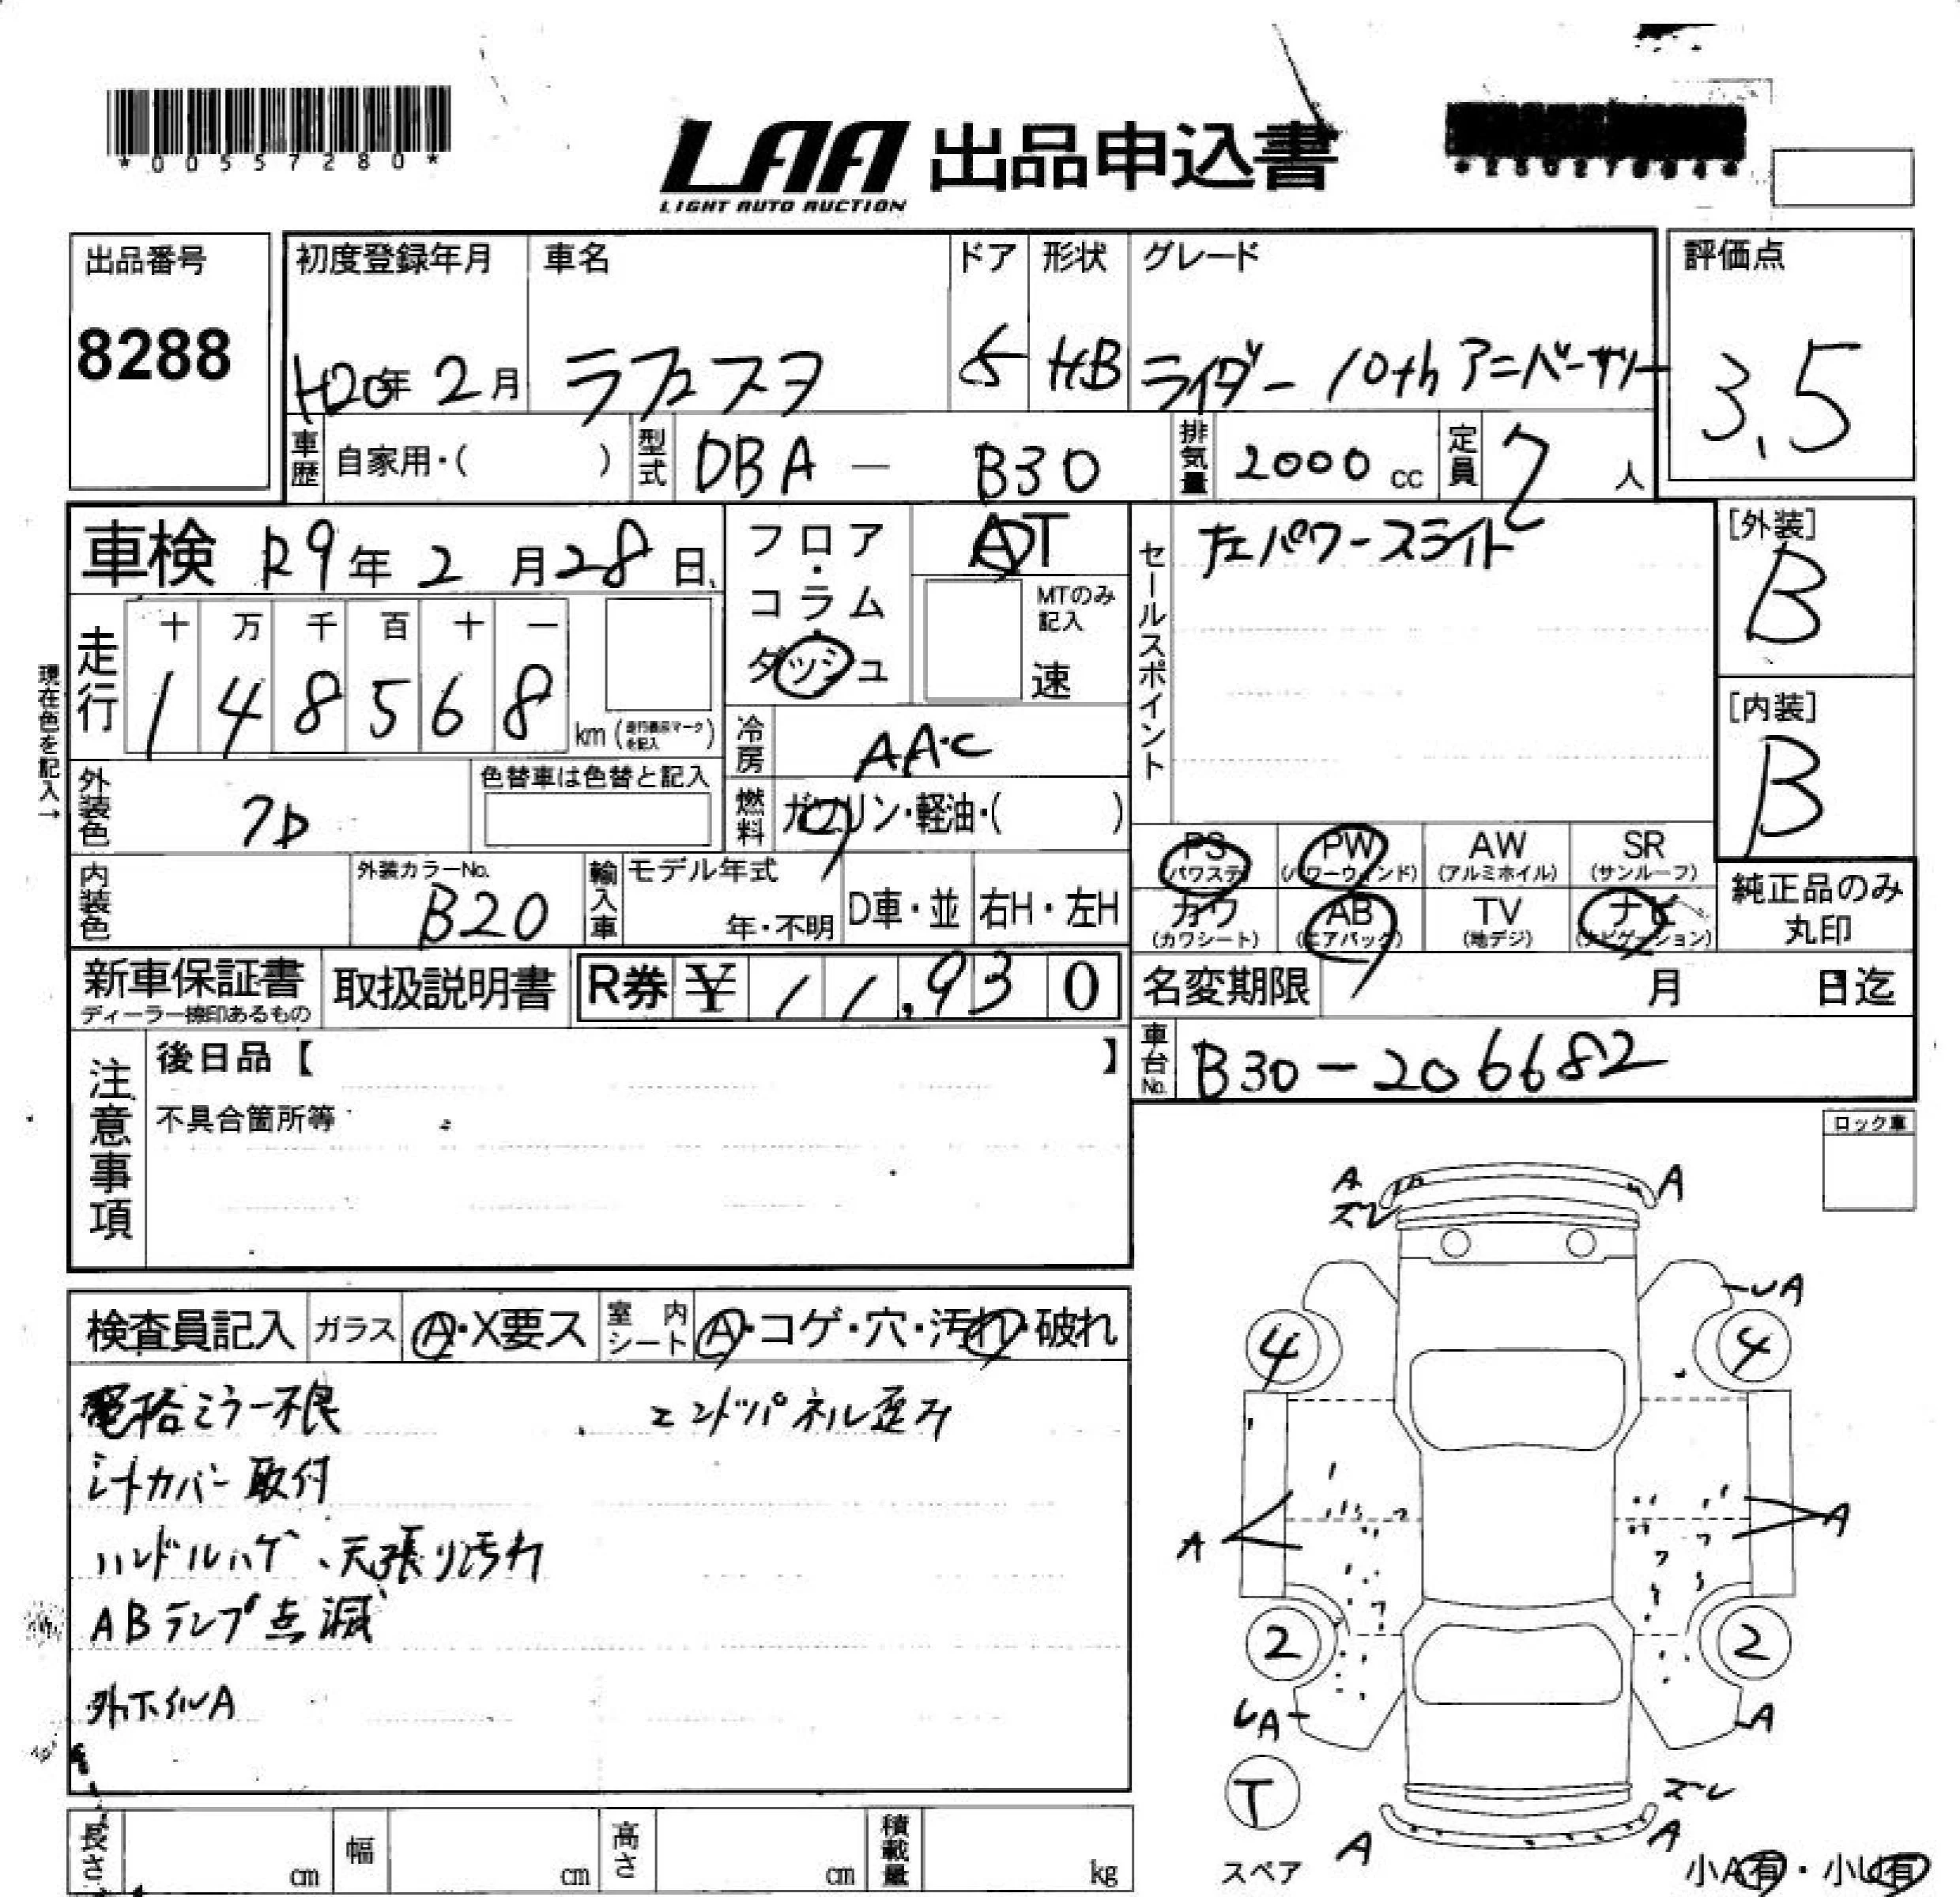 *00557280*
LAA 出品申込書
LIGHT AUTO AUCTION
出品番号
8288
初度登録年月 車名 ドア 形状 グレード 評価点
H20年 2月 ラフェスタ 5 HB ライダー 10th アニバーサリー 3.5
車歴 自家用・( ) 型式 DBA - B30 排気量 2000 cc 定員 7 人
車検 R9年 2月 28日
フロア・コラム・ダッシュ AT
MTのみ記入 速
セールスポイント 左パワースライド
[外装] B
[内装] B
現在色を記入→
走行 十 万 千 百 十 一
1 4 8 5 6 8 km (走行機表示マークを記入)
冷房 AAC
外装色 クロ 色替車は色替と記入
燃料 ガソリン・軽油・( )
内装色 外装カラーNo. B20
輸入車 モデル年式 年・不明 D車・並 右H・左H
PS (パワステ) PW (パワーウィンド) AW (アルミホイル) SR (サンルーフ)
カワ (カワシート) AB (エアバック) TV (地デジ) ナビ (ナビゲーション)
純正品のみ丸印
新車保証書 ディーラー捺印あるもの 取扱説明書 R券 ¥ 11,930
名変期限 月 日迄
車台No. B30-206682
注意事項 後日品【 】
不具合箇所等
ロック車
検査員記入 ガラス A・X要ス 室内シート A・コゲ・穴・汚れ・破れ
電格ミラー不良 エンドパネル歪み
シートカバー取付
ハンドルハゲ、天張り汚れ
ABランプ点滅
外ホイルA
A A
ズレ
UA
4 4
A A
2 2
UA A
T
スペア
ズレ
A A
小A有・小U有
長さ cm 幅 cm 高さ cm 積載量 kg